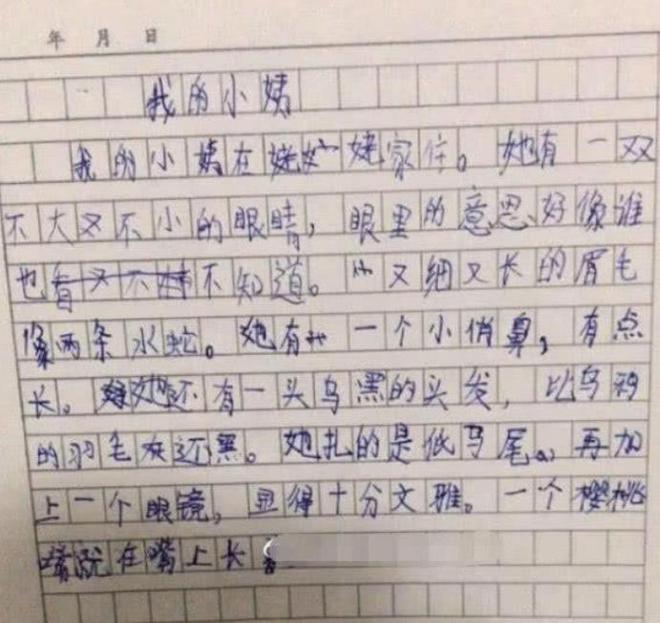 年 月 日
我的小姨
我的小姨在姥姥家住。她有一双
不大又不小的眼睛，眼里的意思好像谁
也不知道。又细又长的眉毛
像两条水蛇。她有一个小俏鼻，有点
长。她还有一头乌黑的头发，比乌鸦
的羽毛灰还黑。她扎的是低马尾。再加
上一个眼镜，显得十分文雅。一个樱桃
嘴就在嘴上长